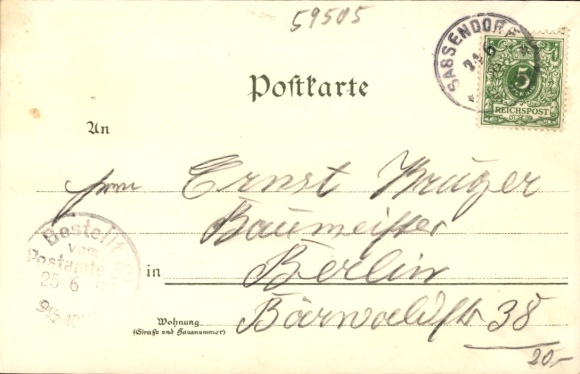 59505
SASSENDORF
5
REICHSPOST
Postkarte
An
Herrn Ernst Krüger
Baumeister
Bestellt
vom
Postamte
25 6
in Berlin
Wohnung
(Straße und Hausnummer)
Bärwaldstr 38
20,-